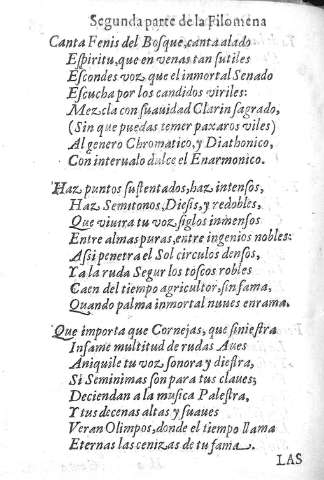 Segunda parte de la Filomena
Canta Fenis del Bosque, canta alado
Eſpiritu, que en venas tan ſutiles
Eſcondes voz, que el inmortal Senado
Eſcucha por los candidos viriles:
Mezcla con ſuauidad Clarin ſagrado,
(Sin que puedas temer paxaros viles)
Al genero Chromatico, y Diathonico,
Con interualo dulce el Enarmonico.
Haz puntos ſuſtentados, haz intenſos,
Haz Semitonos, Dieſis, y redobles,
Que viuira tu voz, ſiglos inmenſos
Entre almas puras, entre ingenios nobles:
Aſsi penetra el Sol circulos denſos,
Ya la ruda Segur los toſcos robles
Caen del tiempo agricultor, ſin fama,
Quando palma inmortal nuues enrama.
Que importa que Cornejas, que ſinieſtra
Infame multitud de rudas Aues
Aniquile tu voz ſonora y dieſtra,
Si Seminimas ſon para tus claues;
Deciendan a la muſica Paleſtra,
Y tus decenas altas y ſuaues
Veran Olimpos, donde el tiempo llama
Eternas las cenizas de tu fama.
LAS